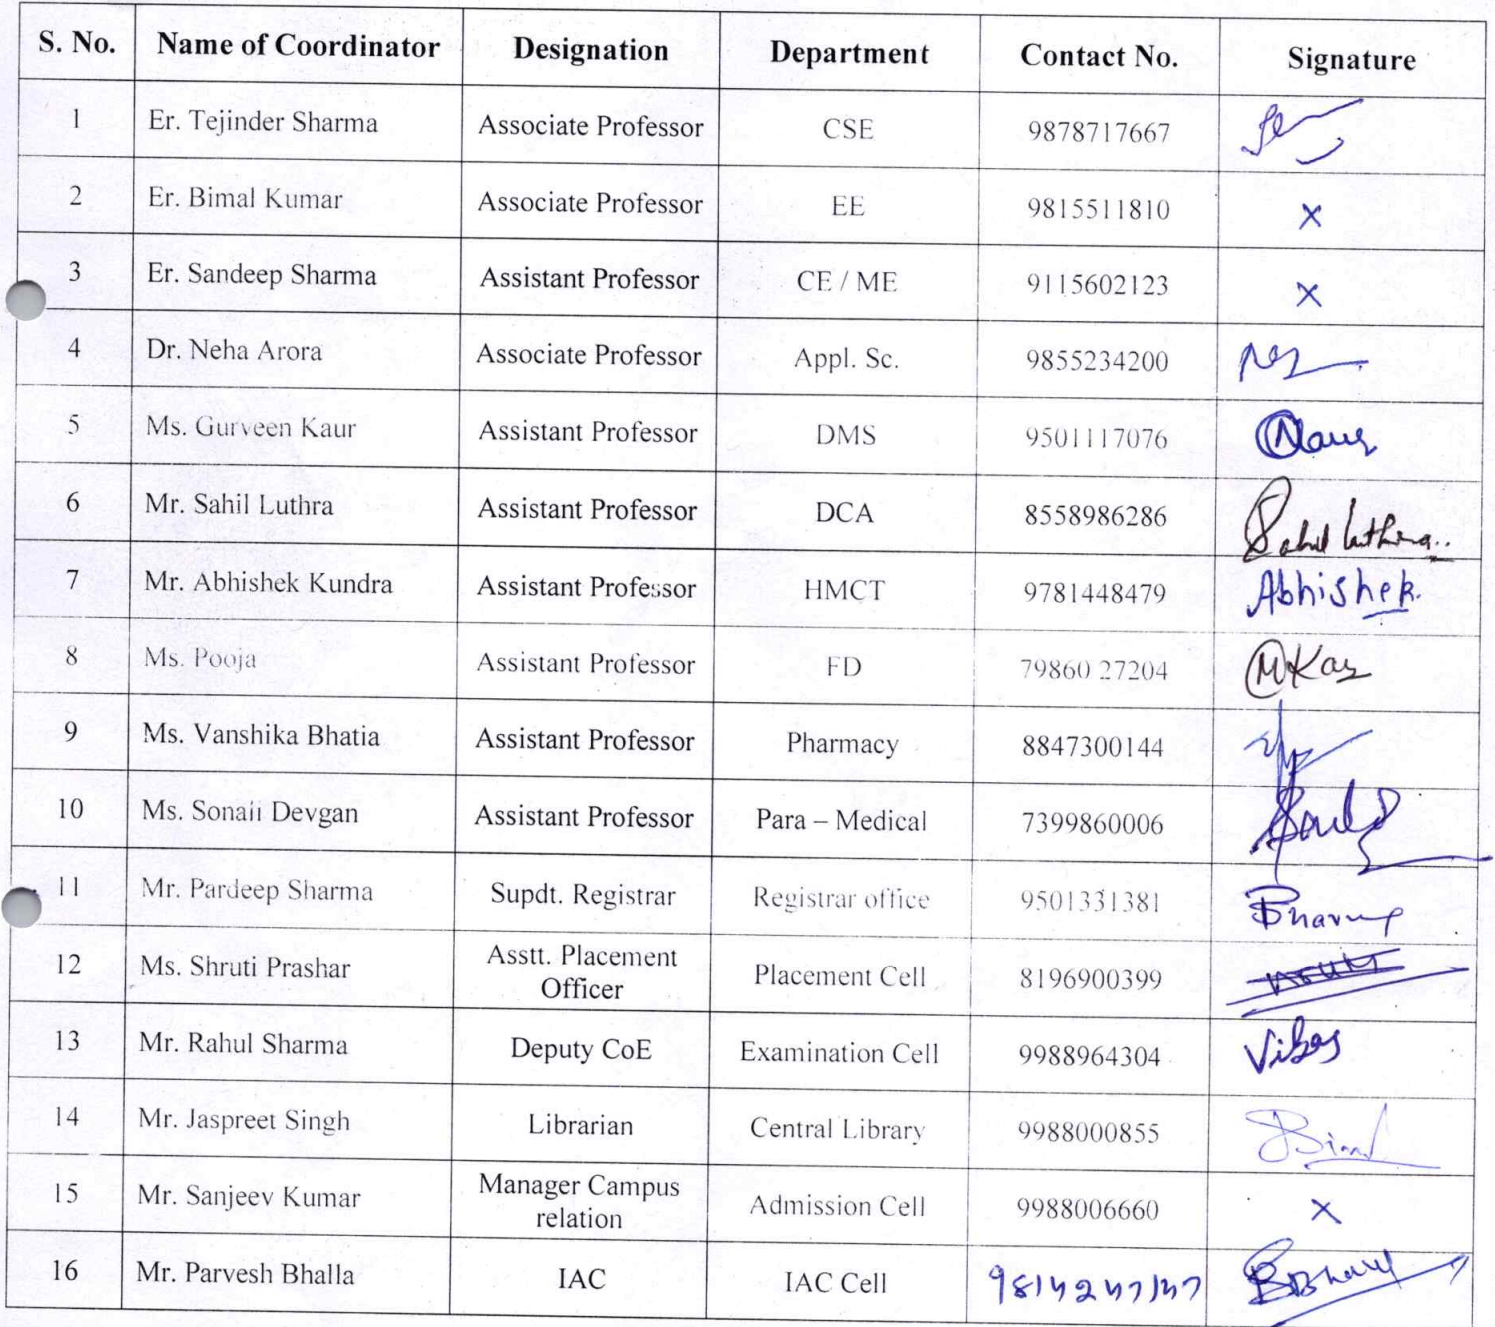 S. No. Name of Coordinator Designation Department Contact No. Signature
1 Er. Tejinder Sharma Associate Professor CSE 9878717667
2 Er. Bimal Kumar Associate Professor EE 9815511810 X
3 Er. Sandeep Sharma Assistant Professor CE / ME 9115602123 X
4 Dr. Neha Arora Associate Professor Appl. Sc. 9855234200
5 Ms. Gurveen Kaur Assistant Professor DMS 9501117076
6 Mr. Sahil Luthra Assistant Professor DCA 8558986286 Sahil Luthra
7 Mr. Abhishek Kundra Assistant Professor HMCT 9781448479 Abhishek.
8 Ms. Pooja Assistant Professor FD 79860 27204
9 Ms. Vanshika Bhatia Assistant Professor Pharmacy 8847300144
10 Ms. Sonali Devgan Assistant Professor Para – Medical 7399860006
11 Mr. Pardeep Sharma Supdt. Registrar Registrar office 9501331381
12 Ms. Shruti Prashar Asstt. Placement
Officer Placement Cell 8196900399
13 Mr. Rahul Sharma Deputy CoE Examination Cell 9988964304
14 Mr. Jaspreet Singh Librarian Central Library 9988000855
15 Mr. Sanjeev Kumar Manager Campus
relation Admission Cell 9988006660 X
16 Mr. Parvesh Bhalla IAC IAC Cell